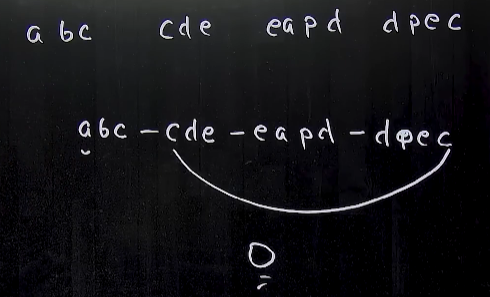 abc cde eapd dpec
abc - cde - eapd - dpec
0